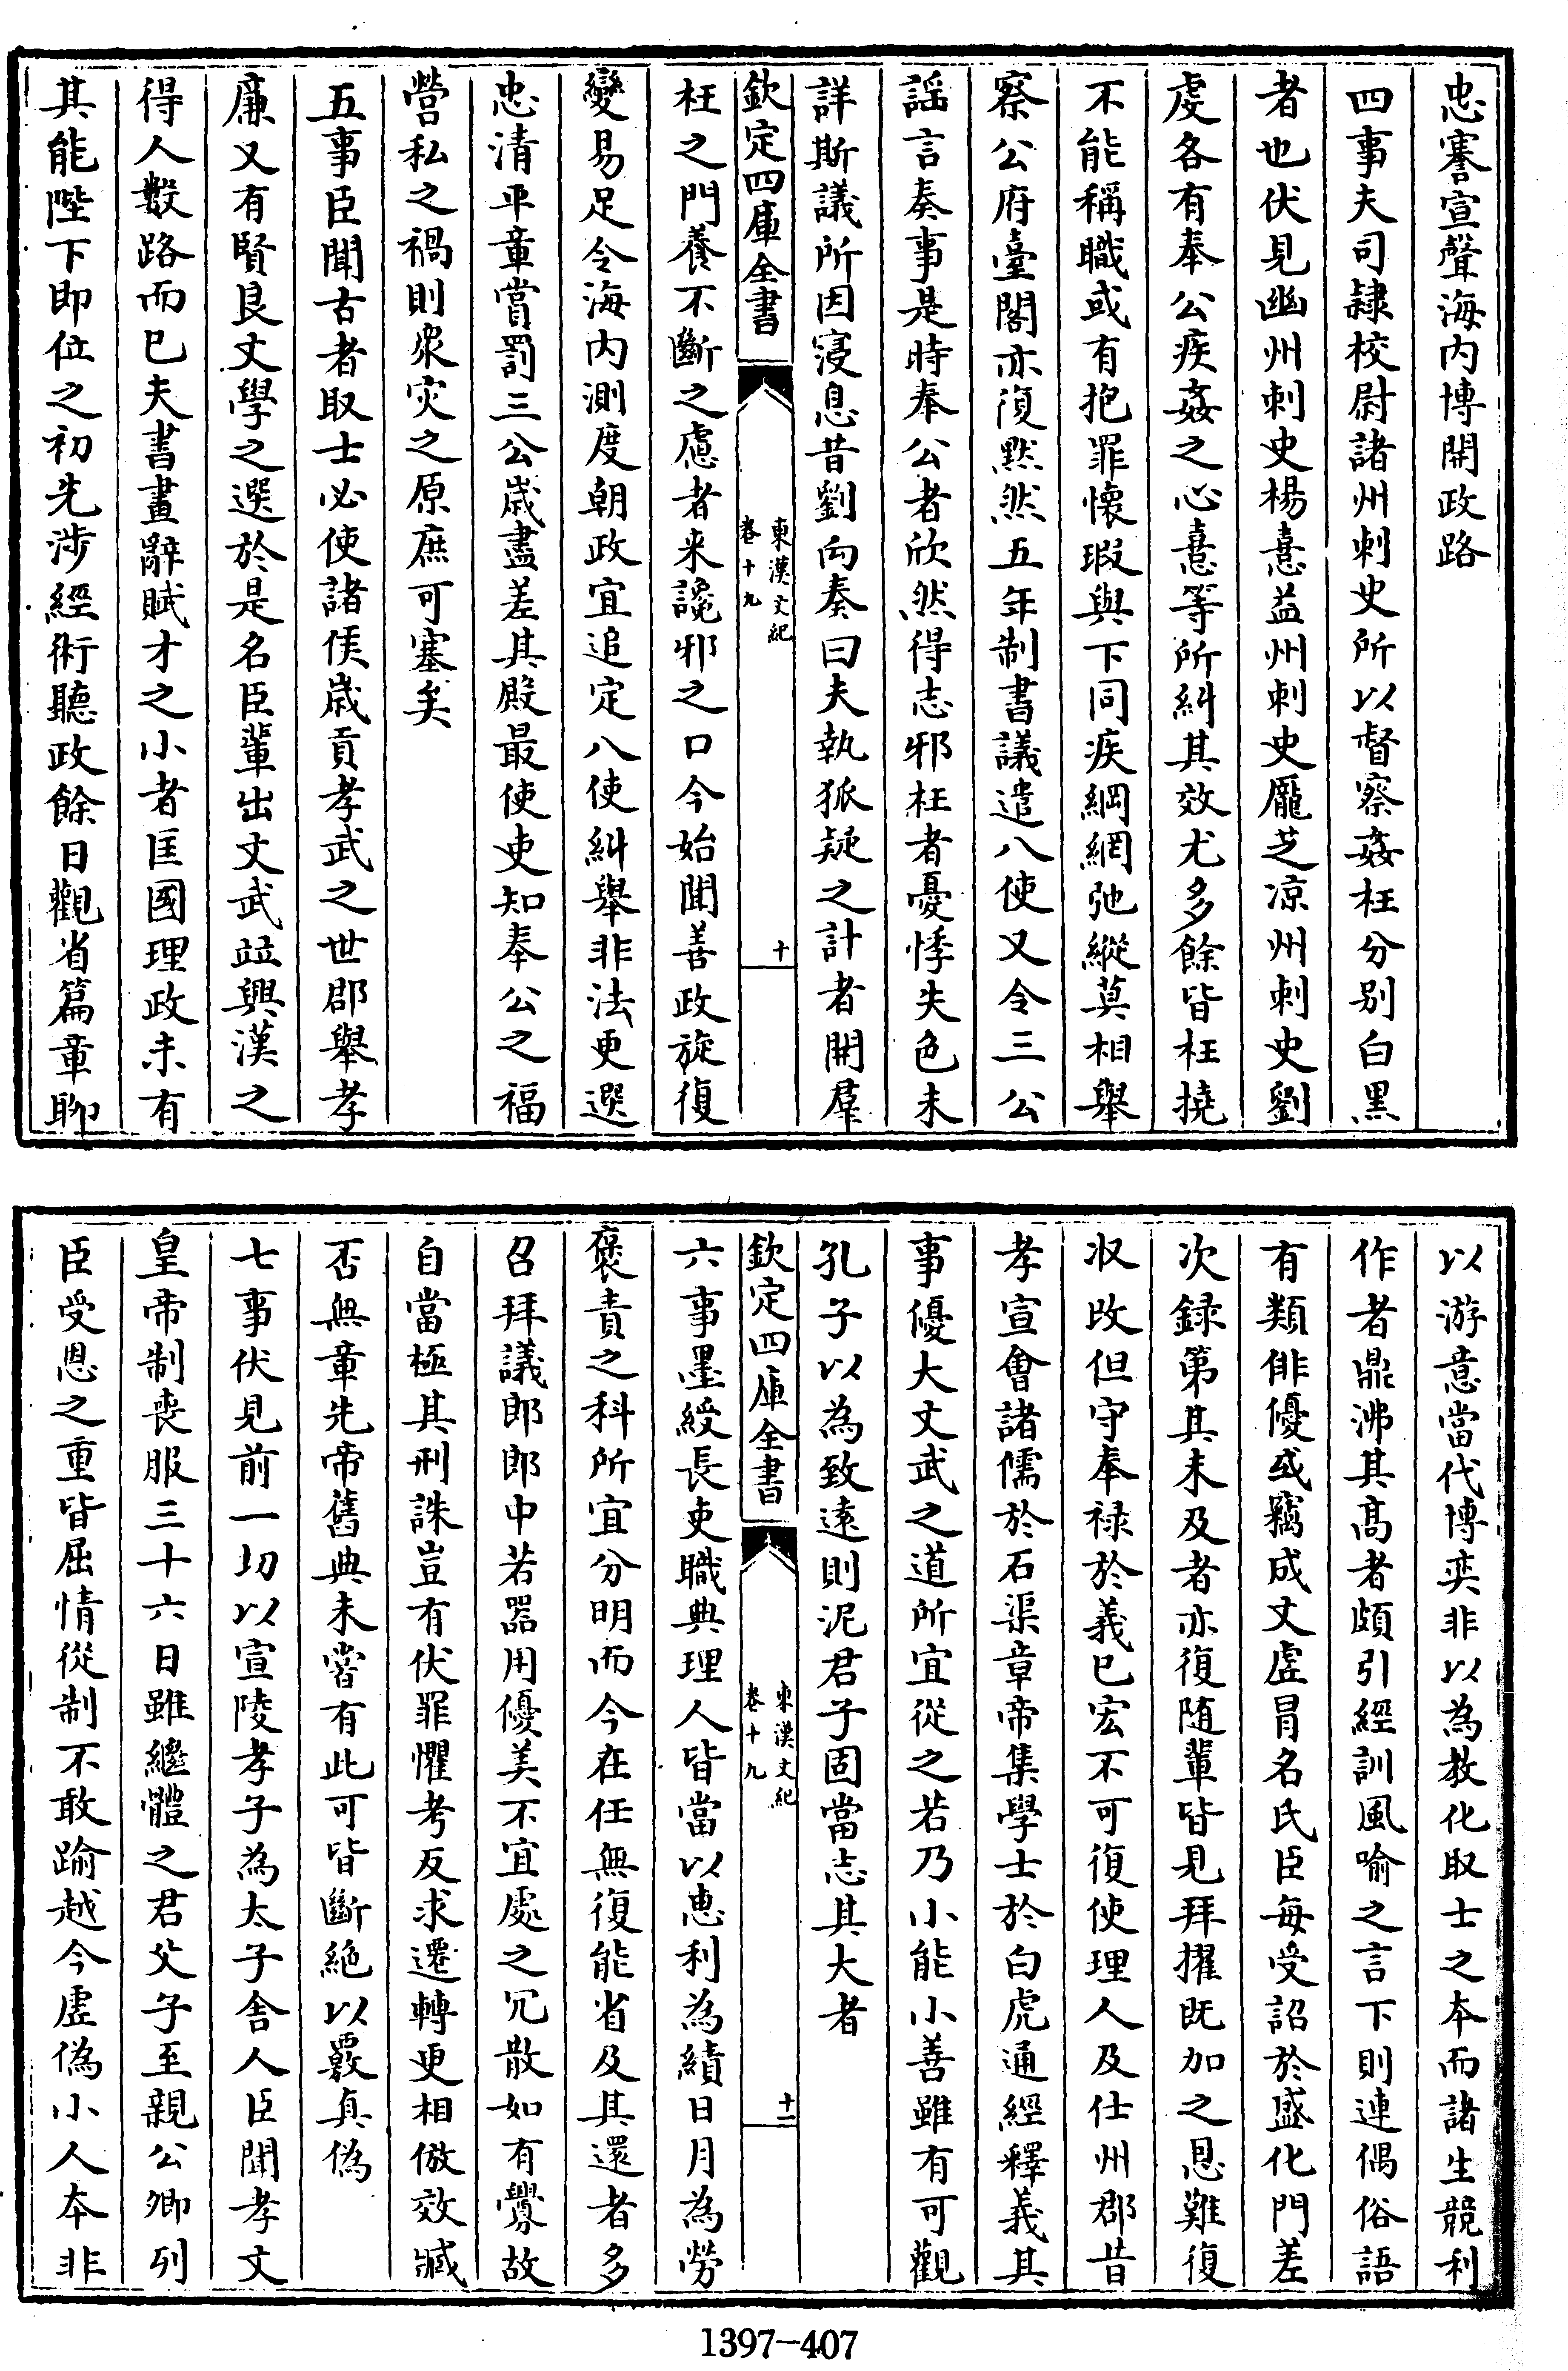 忠謇宣聲海內博開政路
四事夫司隷校尉諸州刺史所以督察姦枉分别白黒
者也伏見幽州刺史楊憙益州刺史龎芝凉州刺史劉
虔各有奉公疾姦之心憙等所糾其效尤多餘皆枉撓
不能稱職或有抱罪懷瑕與下同疾綱網弛縱莫相舉
察公府臺閣亦復黙然五年制書議遣八使又令三公
謡言奏事是時奉公者欣然得志邪枉者憂悸失色未
詳斯議所因寖息昔劉向奏曰夫執狐疑之計者開羣
欽定四庫全書
東漢文紀
卷十九
十
枉之門養不斷之慮者来讒邪之口今始聞善政旋復
變易足令海內測度朝政宜追定八使糾舉非法更選
忠清平章賞罰三公歳盡差其殿最使吏知奉公之福
營私之禍則衆灾之原庶可塞矣
五事臣聞古者取士必使諸侯歳貢孝武之世郡舉孝
廉又有賢良文學之選於是名臣輩出文武竝興漢之
得人數路而已夫書畫辭賦才之小者匡國理政未有
其能陛下即位之初先涉經術聽政餘日觀省篇章聊
以游意當代博奕非以為教化取士之本而諸生競利
作者鼎沸其髙者頗引經訓風喻之言下則連偶俗語
有類俳優或竊成文虚冒名氏臣每受詔於盛化門差
次録第其未及者亦復随輩皆見拜擢既加之恩難復
収改但守奉禄於義已宏不可復使理人及仕州郡昔
孝宣會諸儒於石渠章帝集學士於白虎通經釋義其
事優大文武之道所宜從之若乃小能小善雖有可觀
孔子以為致遠則泥君子固當志其大者
欽定四庫全書
東漢文紀
卷十九
十一
六事墨綬長吏職典理人皆當以惠利為績日月為勞
褒責之科所宜分明而今在任無復能省及其還者多
召拜議郎郎中若器用優美不宜處之冗散如有釁故
自當極其刑誅豈有伏罪懼考反求遷轉更相倣效臧
否無章先帝舊典未嘗有此可皆斷絶以覈真偽
七事伏見前一切以宣陵孝子為太子舍人臣聞孝文
皇帝制喪服三十六日雖繼體之君父子至親公卿列
臣受恩之重皆屈情從制不敢踰越今虚偽小人本非
1397-407